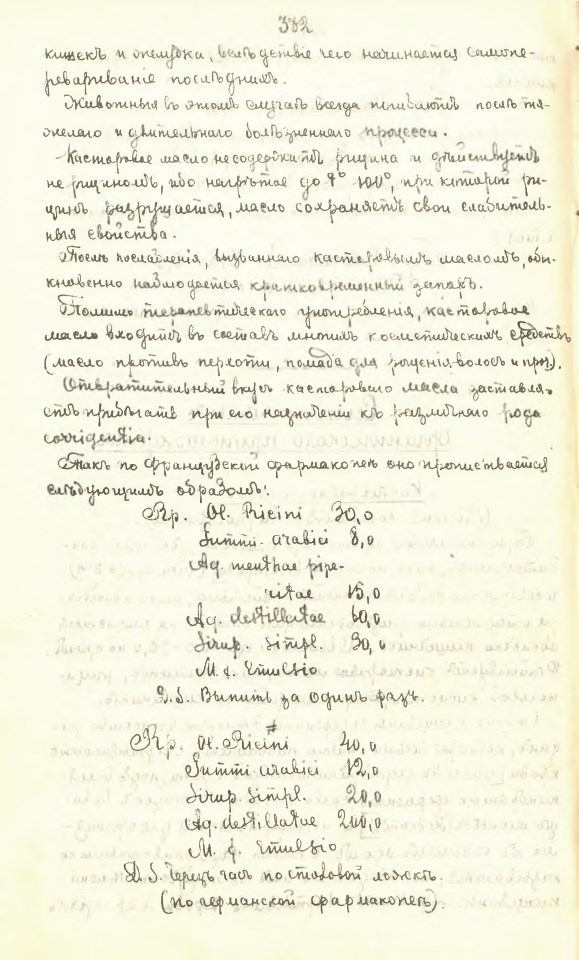 332
кишекъ и желудка, вслѣдствіе чего начинается самопе-
ревариваніе послѣднихъ.
Животныя въ этомъ случаѣ всегда погибаютъ послѣ тя-
желаго и длительнаго болѣзненнаго процесса.
Касторовое масло не содержитъ рицина и дѣйствуетъ
не рициномъ, ибо нагрѣтое до t° 100°, при которой ри-
цинъ разрушается, масло сохраняетъ свои слабитель-
ныя свойства.
Послѣ послабленія, вызваннаго касторовымъ масломъ, обы-
кновенно наблюдается кратковременный запоръ.
Помимо терапевтическаго употребленія, касторовое
масло входитъ въ составъ многихъ косметическихъ средствъ
(масло противъ перхоти, помада для рощенія волосъ и проч.).
Отвратительный вкусъ касторового масла заставля-
етъ прибѣгать при его назначеніи къ различнаго рода
corrigentia.
Такъ по французской фармакопеѣ оно прописывается
слѣдующимъ образомъ:
Rp. Ol. Ricini 30,0
Gummi arabici 8,0
Aq. menthae pipe-
ritae 15,0
Aq. destillatae 60,0
Sirup. Simpl. 30,0
M. f. Emulsio
D. S. Выпить за одинъ разъ.
Rp. Ol. Ricini 40,0
Gummi arabici 12,0
Sirup. Simpl. 20,0
Aq. destillatae 200,0
M. f. Emulsio
D. S. Черезъ часъ по столовой ложкѣ.
(по германской фармакопеѣ).